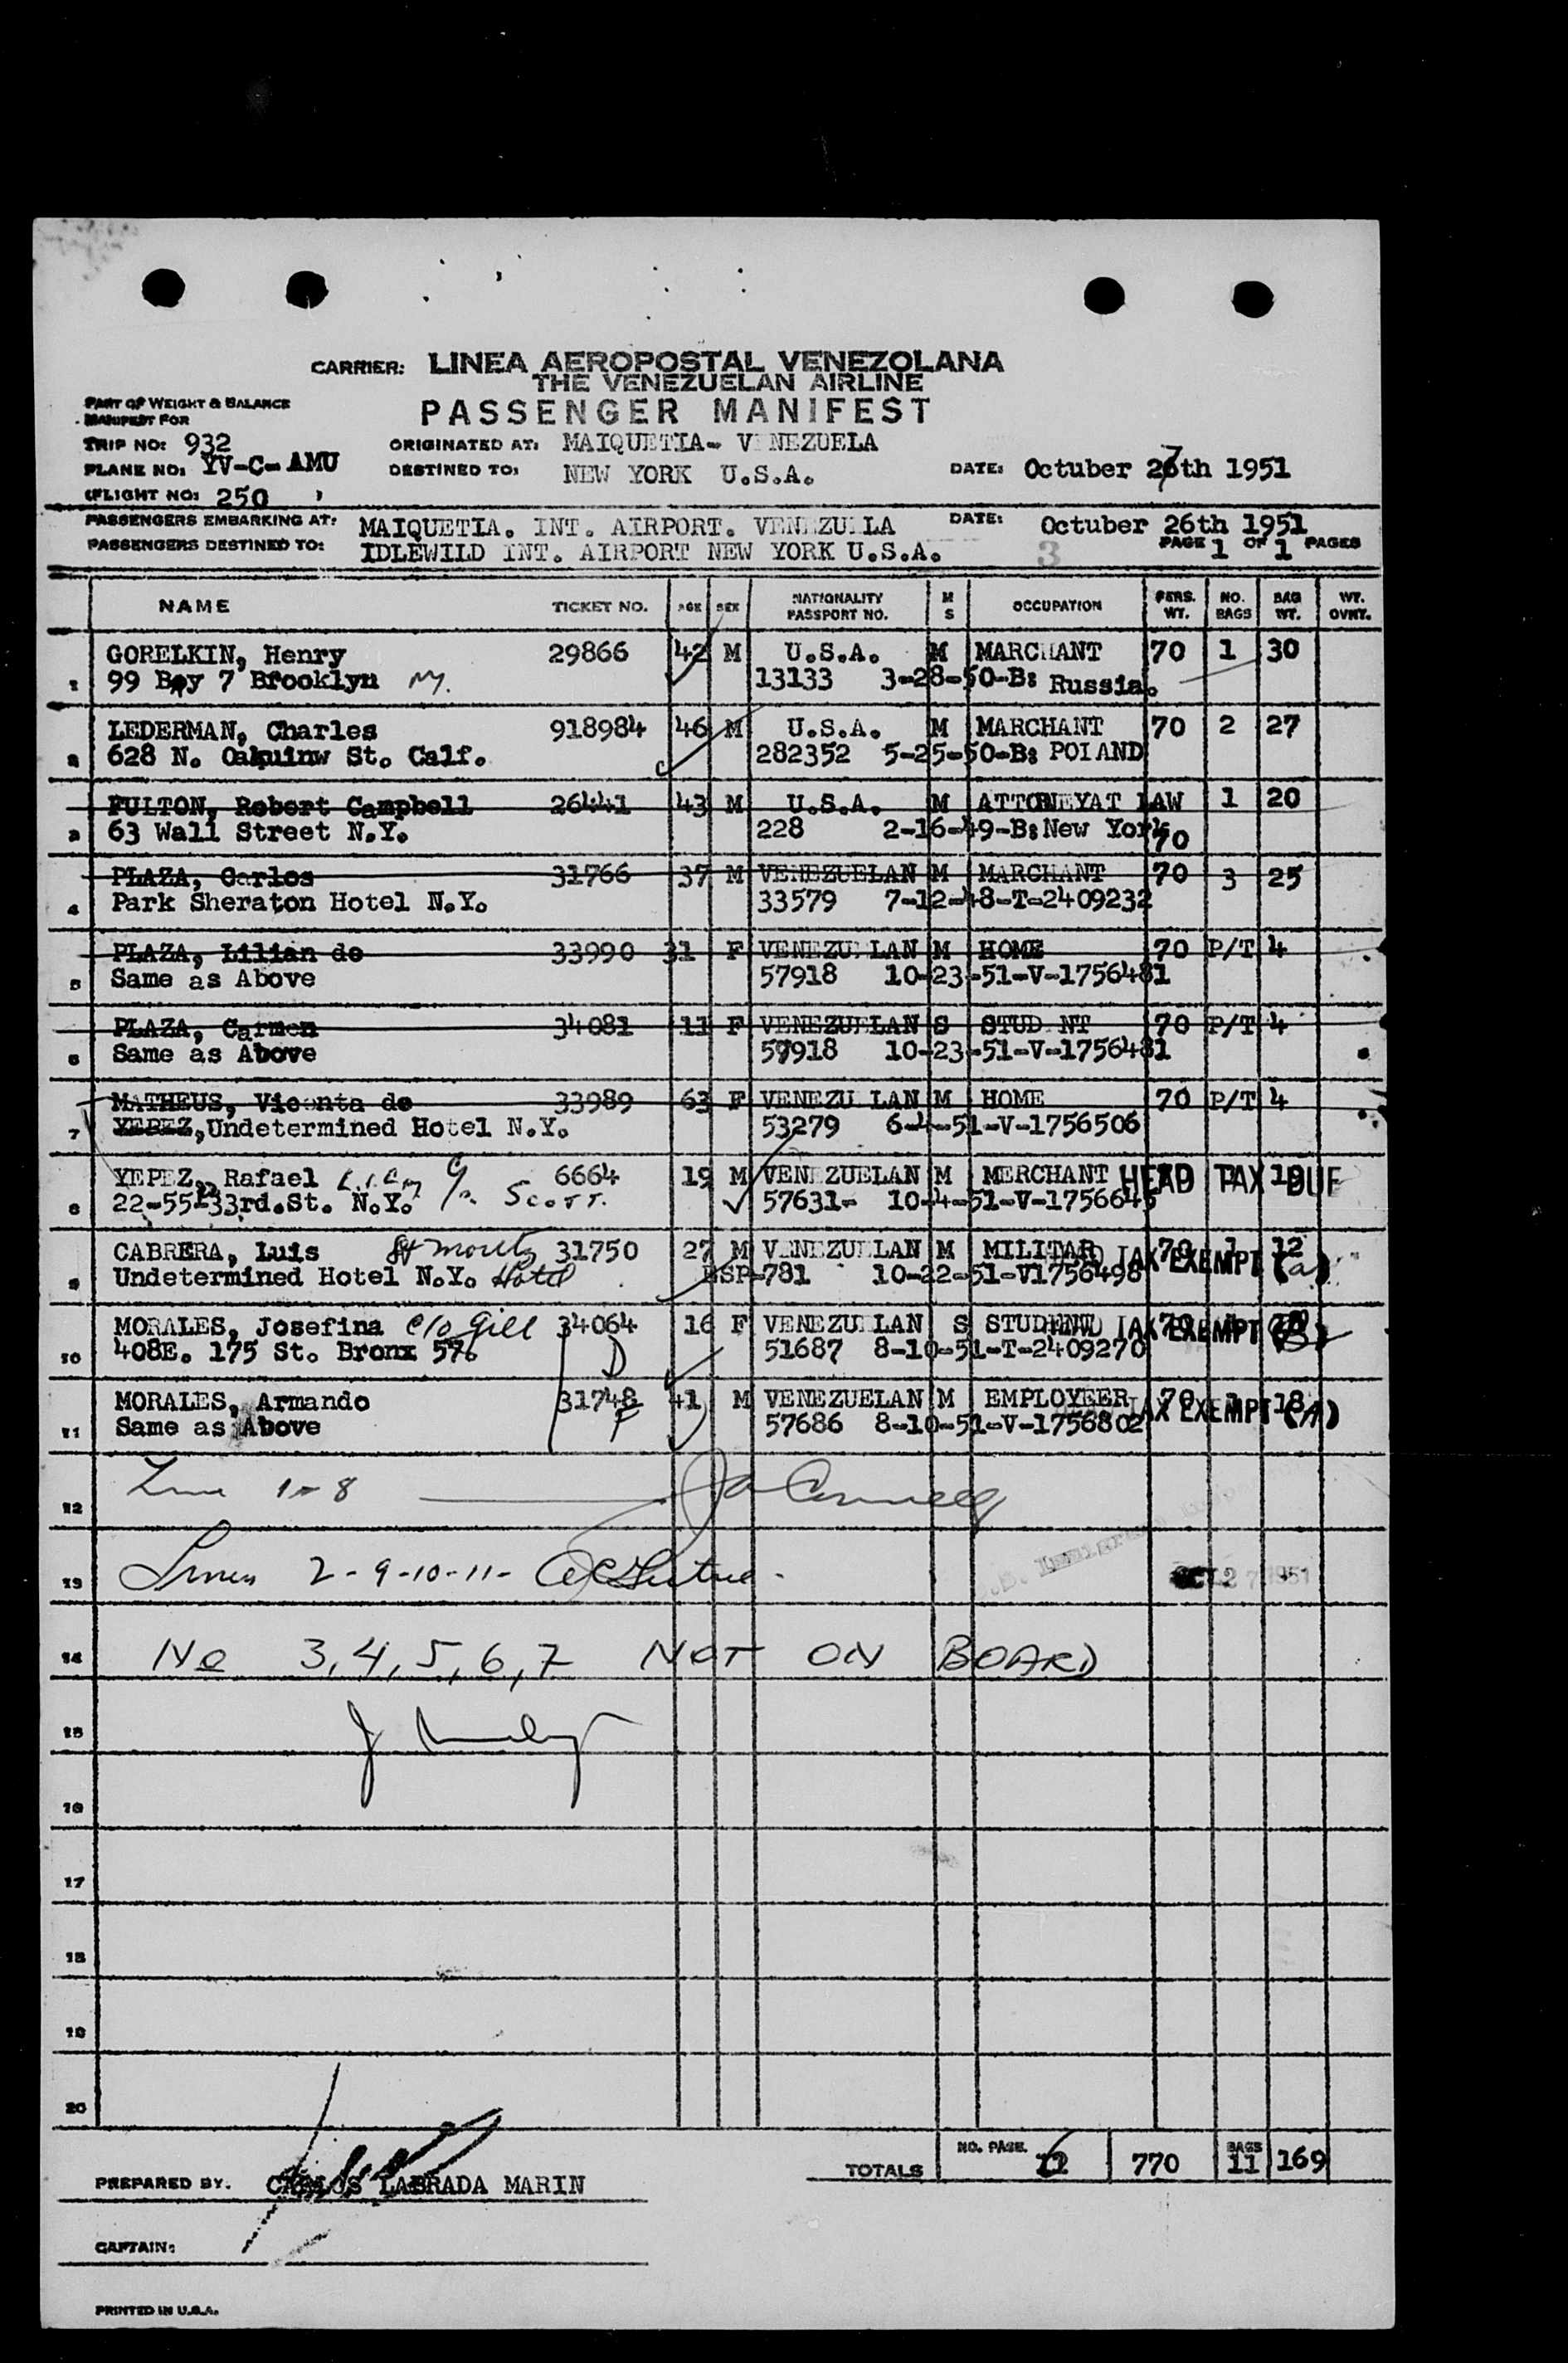 CARRIER: LINEA AEROPOSTAL VENEZOLANA
THE VENEZUELAN AIRLINE
PART OF WEIGHT & BALANCE
MANIFEST FOR
PASSENGER MANIFEST
TRIP NO: 932 ORIGINATED AT: MAIQUETIA- VENEZUELA
PLANE NO: YV-C-AMU DESTINED TO: NEW YORK U.S.A. DATE: Octuber 27th 1951
(FLIGHT NO: 250 )
PASSENGERS EMBARKING AT: MAIQUETIA. INT. AIRPORT. VENEZUELA DATE: Octuber 26th 1951
PASSENGERS DESTINED TO: IDLEWILD INT. AIRPORT NEW YORK U.S.A. 3 PAGE 1 OF 1 PAGES
NAME TICKET NO. AGE SEX NATIONALITY PASSPORT NO. M S OCCUPATION PERS. WT. NO. BAGS BAG WT. WT. OVNT.
GORELKIN, Henry 29866 42 M U.S.A. M MARCHANT 70 1 30
1 99 Bay 7 Brooklyn 13133 3-28-50-B: Russia.
LEDERMAN, Charles 918984 46 M U.S.A. M MARCHANT 70 2 27
2 628 N. St. Calf. 282352 5-25-50-B: POIAND
FULTON, Robert Campbell 26441 43 M U.S.A. M ATTORNEYAT LAW 1 20
3 63 Wall Street N.Y. 228 2-16-49-B:New York 70
PLAZA, Carlos 31766 37 M VENEZUELAN M MARCHANT 70 3 25
4 Park Sheraton Hotel N.Y. 33579 7-12-48-T-2409232
PLAZA, Lilian de 33990 31 F VENEZUELAN M HOME 70 P/T 4
5 Same as Above 57918 10-23-51-V-1756481
PLAZA, Carmen 34081 11 F VENEZUELAN S STUDENT 70 P/T 4
6 Same as Above 57918 10-23-51-V-1756481
MATHEUS, Vicenta de 33989 63 F VENEZUELAN M HOME 70 P/T 4
7 YEPEZ,Undetermined Hotel N.Y. 53279 6-4-51-V-1756506
YEPEZ, Rafael c/o 6664 19 M VENEZUELAN M MERCHANT HEAD TAX DUE
8 22-55-33rd.St. N.Y. Scott. 57631- 10-4-51-V-1756645
CABRERA, Luis St Moritz 31750 27 M VENEZUELAN M MILITAR 70 1 12
9 Undetermined Hotel N.Y. Hotel BSP-781 10-22-51-V1756498 TAX EXEMPT (a)
MORALES, Josefina c/o Gill 34064 16 F VENEZUELAN S STUDENT 70 TAX EXEMPT
10 408E. 175 St. Bronx 57. D 51687 8-10-51-T-2409270
MORALES, Armando 31748 41 M VENEZUELAN M EMPLOYEER 70 1 18
11 Same as Above F 57686 8-10-51-V-1756802 TAX EXEMPT (A)
12 Line 1-8
13 Lines 2-9-10-11- OCT 27 1951
14 No 3,4,5,6,7 NOT ON BOARD
15
16
17
18
19
20
TOTALS NO. PASS. 770 BAGS 11 169
PREPARED BY. CARLOS LABRADA MARIN
CAPTAIN:
PRINTED IN U.S.A.